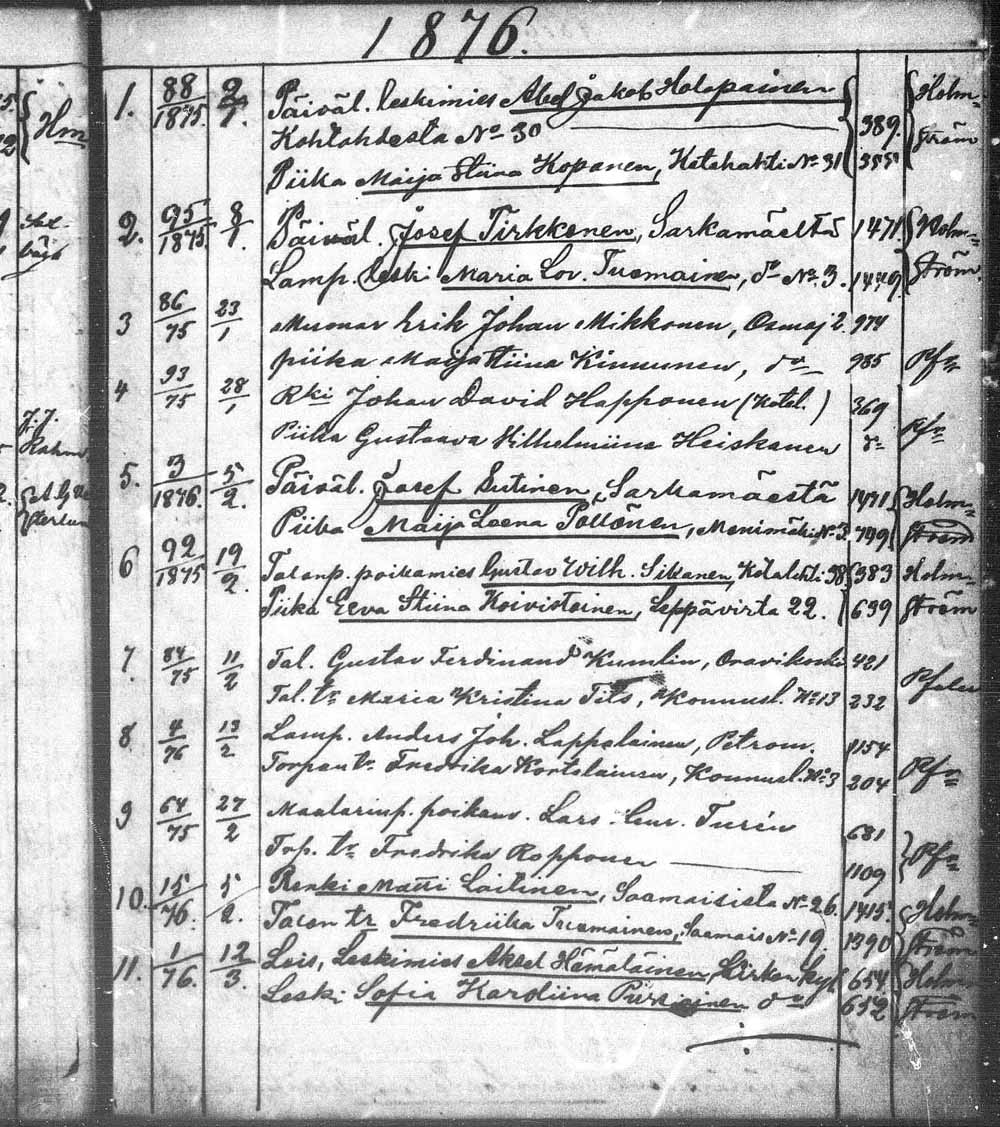 1876.
Hm
1. 88/1875. 2/1. Päiväl. leskimies Abel Jakob Holopainen 389. Holm-
Kohtahdesta No 30 ström
Piika Maija Stiina Kopanen, Kotahahti No 31 355
2. 95/1875. 8/1 Päiväl. Josef Tirkkonen, Sarkamäeltä 1471. Holm-
Lamp. leski Maria Lov. Tuomainen, do No. 3. 1449. ström
3 86/75 23/1 Muurar Erik Johan Mikkonen, Osmaj 2. 974
piika Maija Stiina Kinnunen, do 985 Pfr
4 93/75 28/1 Rki Johan David Happonen (Kotal.) 369
Piika Gustaava Vilhelmiina Heiskanen do Pfr
5. 3/1876. 5/2. Päiväl. Josef Sutinen, Sarkamäestä 1471 Holm-
Piika Maija Leena Pollönen, Monimäki No 3. 799 ström
6 92/1875 19/2. Talonp. poikamies Gustav Wilh. Sikanen, Kotalahti 38 383 Holm-
Piika Eeva Stiina Koivistoinen, Leppävirta 22. 639 ström
7. 84/75 11/2 Tal. Gustav Ferdinand Kumlin, Oravikoski 421
Tal. tr Maria Kristina Tits, Konnusl. No 13 232 Pfaler
8. 4/76 13/2 Lamp. Anders Joh. Lappalainen, Petrom. 1154
Torpan tr. Fredrika Kortelainen, Konnusl. No 3 204 Pfr
9 64/75 27/2 Maalarinp. poikam. Lars Turin 681
Trp. tr Fredrika Ropponen 1109 Pfr
10. 15/76. 5/2. Renki Matti Laitinen, Saamaisista No 26. 1415. Holm-
Talon tr Fredriika Tuomainen, Saamais No 19. 1390 ström
11. 1/76. 12/3. Lois, Leskimies Aksel Hämäläinen, Kirkonkyl 654. Holm-
Leski Sofia Karoliina do 652 ström